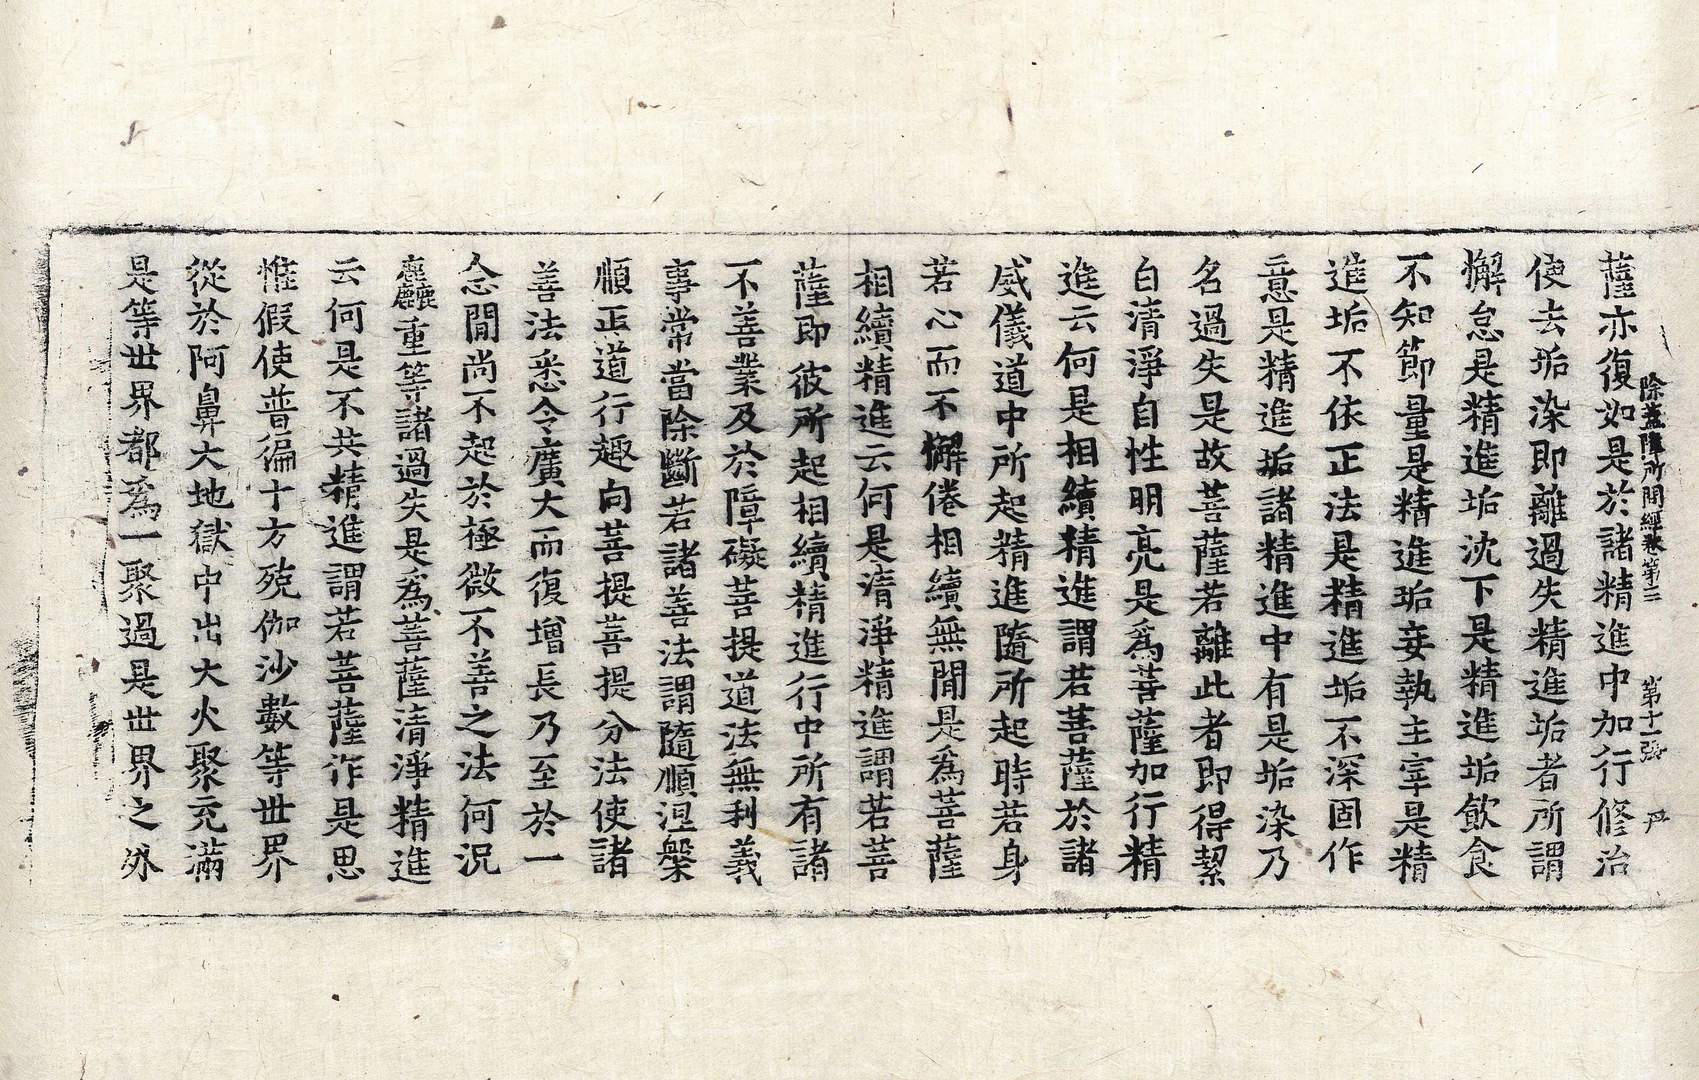 除蓋障所問經卷第三 第十一張 尸
薩亦復如是於諸精進中加行修治
使去垢染即離過失精進垢者所謂
懈怠是精進垢沈下是精進垢飲食
不知節量是精進垢妄執主宰是精
進垢不依正法是精進垢不深固作
意是精進垢諸精進中有是垢染乃
名過失是故菩薩若離此者即得潔
白清淨自性明亮是爲菩薩加行精
進云何是相續精進謂若菩薩於諸
威儀道中所起精進隨所起時若身
若心而不懈倦相續無閒是爲菩薩
相續精進云何是清淨精進謂若菩
薩即彼所起相續精進行中所有諸
不善業及於障礙菩提道法無利義
事常當除斷若諸善法謂隨順涅槃
順正道行趣向菩提菩提分法使諸
善法悉令廣大而復增長乃至於一
念閒尚不起於極微不善之法何況
麁麤重等諸過失是爲菩薩清淨精進
云何是不共精進謂若菩薩作是思
惟假使普徧十方殑伽沙數等世界
從於阿鼻大地獄中出大火聚充滿
是等世界都爲一聚過是世界之外